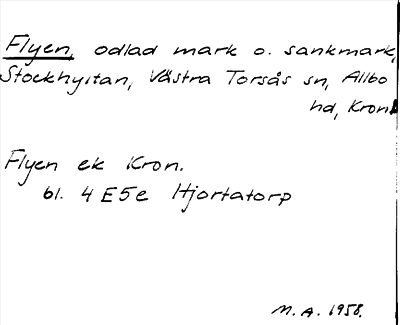 Flyen, odlad mark o. sankmark,
Stockhyltan, Västra Torsås sn, Allbo
hd, Kron.
Flyen ek Kron.
bl. 4 E5e Hjortatorp
M.A. 1958.